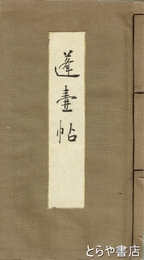 蓬壺帖
とらや書店